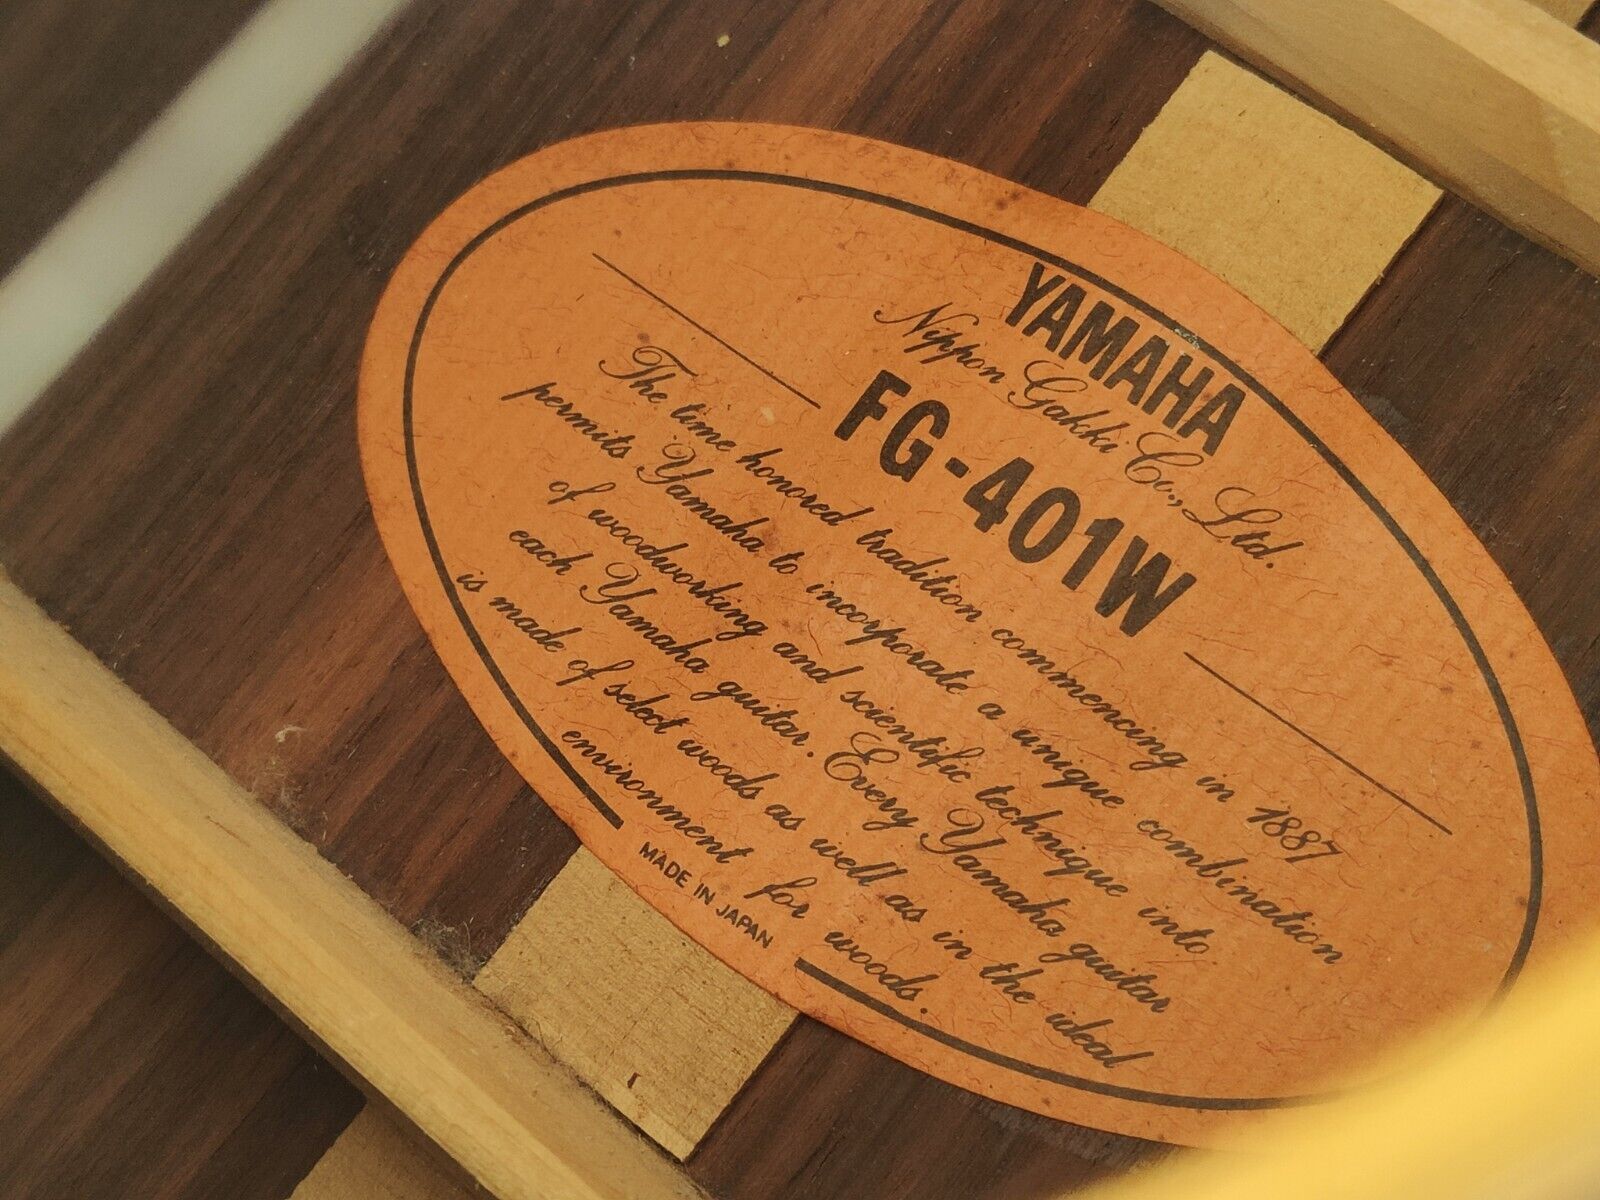 YAMAHA
Nippon Gakki Co., Ltd.
FG-401W
The time honored tradition commencing in 1887
permits Yamaha to incorporate a unique combination
of woodworking and scientific technique into
each Yamaha guitar. Every Yamaha guitar
is made of select woods as well as in the ideal
environment for woods.
MADE IN JAPAN